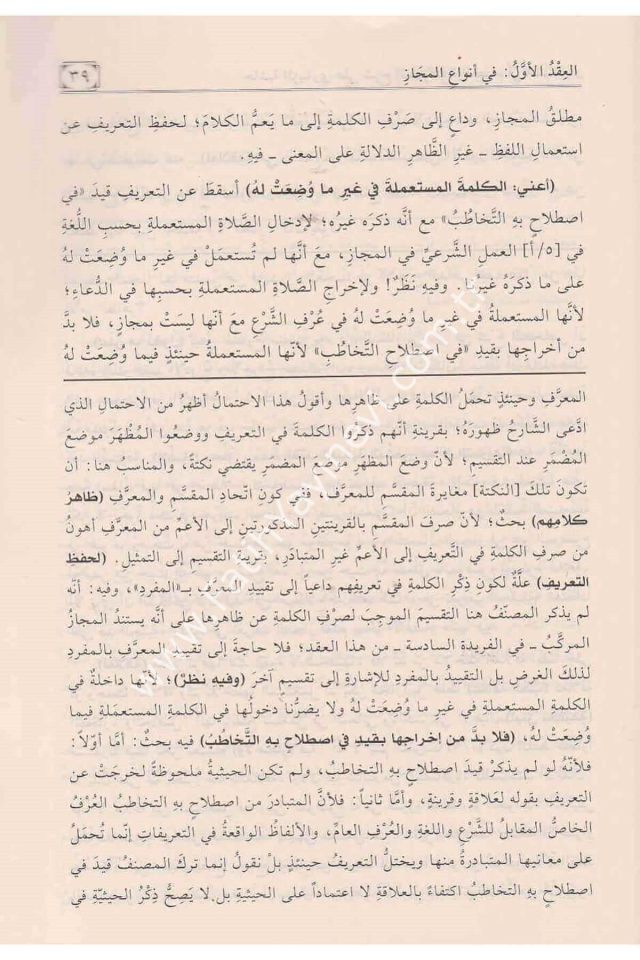 العِقْدُ الأوَّلُ: في أنواعِ المجَازِ
٣٩
مطلقُ المجازِ، وداعٍ إلى صَرْفِ الكلمةِ إلى ما يَعمُّ الكلامَ؛ لحفظِ التعريفِ عن
استعمالِ اللفظِ ـ غيرِ الظَّاهرِ الدلالةِ على المعنى ـ فيهِ.
(أعني: الكلمةَ المستعملةَ في غيرِ ما وُضِعَتْ له) أسقطَ عن التعريفِ قيدَ «في
اصطلاحٍ بهِ التَّخاطُبُ» مع أنَّه ذكرَه غيرُه؛ لإدخالِ الصَّلاةِ المستعملةِ بحسبِ اللُّغةِ
في [٥/أ] العملِ الشَّرعيِّ في المجازِ، معَ أنَّها لم تُستعمَلْ في غيرِ ما وُضِعَتْ لهُ
على ما ذكرَهُ غيرُنا. وفيهِ نَظَرٌ! ولإخراجِ الصَّلاةِ المستعملةِ بحسبِها في الدُّعاءِ؛
لأنَّها المستعملةُ في غيرِ ما وُضِعَتْ لهُ في عُرْفِ الشَّرعِ مع أنّها ليسَتْ بمجازٍ، فلا بدَّ
من أخراجِها بقيدِ «في اصطلاحِ التَّخاطُبِ» لأنّها المستعملةُ حينئذٍ فيما وُضِعَتْ لهُ
المعرَّفِ وحينئذٍ تحمَلُ الكلمةِ على ظاهرِها وأقولُ هذا الاحتمالُ أظهرُ من الاحتمالِ الذي
ادّعى الشَّارحُ ظهورَهُ؛ بقرينةِ أنّهم ذكروا الكلمةَ في التعريفِ ووضعُوا المُظْهَرَ موضعَ
المُضْمَرِ عند التقسيمِ؛ لأنّ وضعَ المظهَرِ موضعَ المضمَرِ يقتضي نكتةً، والمناسبُ هنا: أن
تكونَ تلكَ [النكتة] مغايرةَ المقسَّمِ للمعرَّفِ، ففي كونِ اتّحادِ المقسَّمِ والمعرَّفِ (ظاهرُ
كلامِهم) بحثٌ؛ لأنّ صرفَ المقسَّمِ بالقرينتينِ المذكورتينِ إلى الأعمِّ من المعرَّفِ أهونُ
من صرفِ الكلمةِ في التَّعريفِ إلى الأعمِّ غيرِ المتبادَرِ، بقرينةِ التقسيمِ إلى التمثيلِ. (لحفظِ
التعريفِ) علّةٌ لكونِ ذِكْرِ الكلمةِ في تعريفِهم داعياً إلى تقييدِ المعرَّفِ بـ«المفردِ»، وفيه: أنّه
لم يذكرِ المصنّفُ هنا التقسيمَ الموجِبَ لصرفِ الكلمةِ عن ظاهرِها على أنّه يستندُ المجازُ
المركّبُ ـ في الفريدة السادسة ـ من هذا العقدِ؛ فلا حاجةَ إلى تقييدِ المعرَّفِ بالمفردِ
لذلكَ الغرضِ بل التقييدُ بالمفردِ للإشارةِ إلى تقسيمٍ آخرَ (وفيهِ نظرٌ)؛ لأنّها داخلةٌ في
الكلمةِ المستعملةِ في غيرِ ما وُضِعَتْ لهُ ولا يضرُّنا دخولُها في الكلمةِ المستعمَلةِ فيما
وُضِعَتْ لهُ، (فلا بدَّ من إخراجِها بقيدِ في اصطلاحٍ بهِ التَّخاطُبُ) فيه بحثٌ: أمّا أوّلاً:
فلأنّهُ لو لم يذكرْ قيدَ اصطلاحٍ بهِ التخاطبُ، ولم تكنِ الحيثيةُ ملحوظةً لخرجَتْ عن
التعريفِ بقولِه لعَلاقةٍ وقرينةٍ، وأمّا ثانياً: فلأنَّ المتبادرَ من اصطلاحٍ بهِ التخاطبُ العُرْفُ
الخاصُّ المقابلُ للشَّرْعِ واللغةِ والعُرْفِ العامِّ، والألفاظُ الواقعةُ في التعريفاتِ إنّما تُحمَلُ
على معانيها المتبادرةِ منها ويختلُّ التعريفُ حينئذٍ بلْ نقولُ إنما تركَ المصنفُ قيدَ في
اصطلاحٍ بِهِ التخاطبُ اكتفاءً بالعلاقةِ لا اعتماداً على الحيثيةِ بل لا يَصِحُّ ذِكْرُ الحيثيّةِ في